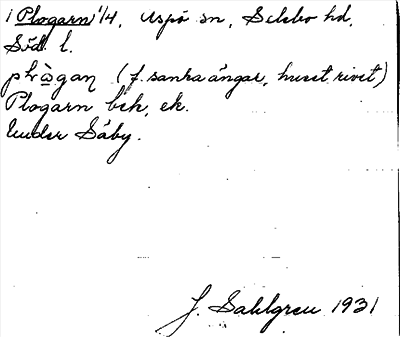 i Plogarn 1/4, Uspö sn, Selebo hd,
Söd. l.
plωgaɳ (f. sanka ängar, huset rivet)
Plogarn bek, ek.
lunder Säby.
J. Sahlgren 1931